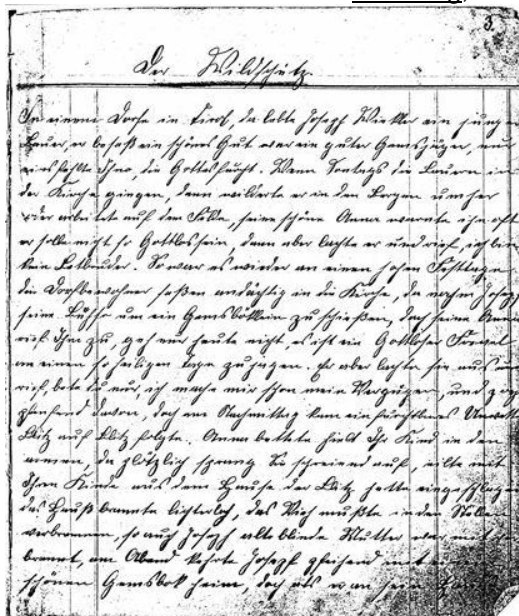 3.
Der Wildschütz.
In einem Dorfe in Tirol, da lebte Joseph Winkler ein junger
Bauer, er besaß ein schönes Gut war ein guter Gemsjäger, nur
eins fehlte Ihm, die Gottesfurcht. Wenn Sontags die Bauern in
der Kirche gingen, dann wilderte er in den Bergen umher
oder arbeitete auf dem Felde, seine schöne Anna warnte ihn oft
er solle nicht so Gottlos sein, dann aber lachte er und rief, ich bin
kein Betbruder. So war es wieder an einen hohen Festtage
die Dorfbewohner saßen andächtig in die Kirche, da nahm Joseph
seine Büchse um ein Gemsböcklein zu schießen, doch seine Anna
rief Ihm zu, geh nur heute nicht, es ist ein Gottloser Frevel
an einen so heiligen Tage zu jagen. Er aber lachte sie aus und
rief, bete du nur ich mache mir schon mein Vergnügen, und zog
pfeifend davon, doch am Nachmittag kam ein fürchtliches Unwetter
Blitz auf Blitz folgte. Anna bettete hielt Ihr Kind in den
armen, da plötzlich sprang Sie schreiend auf, eilte mit
Ihren Kinde aus dem Hause der Blitz hatte eingeschlagen
das Hauß brannte lichterloh, das Vieh mußte in den Stallen
verbrennen, so auch Joseph alte blinde Mutter war mit
brannt, am Abend kehrte Joseph pfeifend mit
schönen Gemsbok heim, doch als er an sein